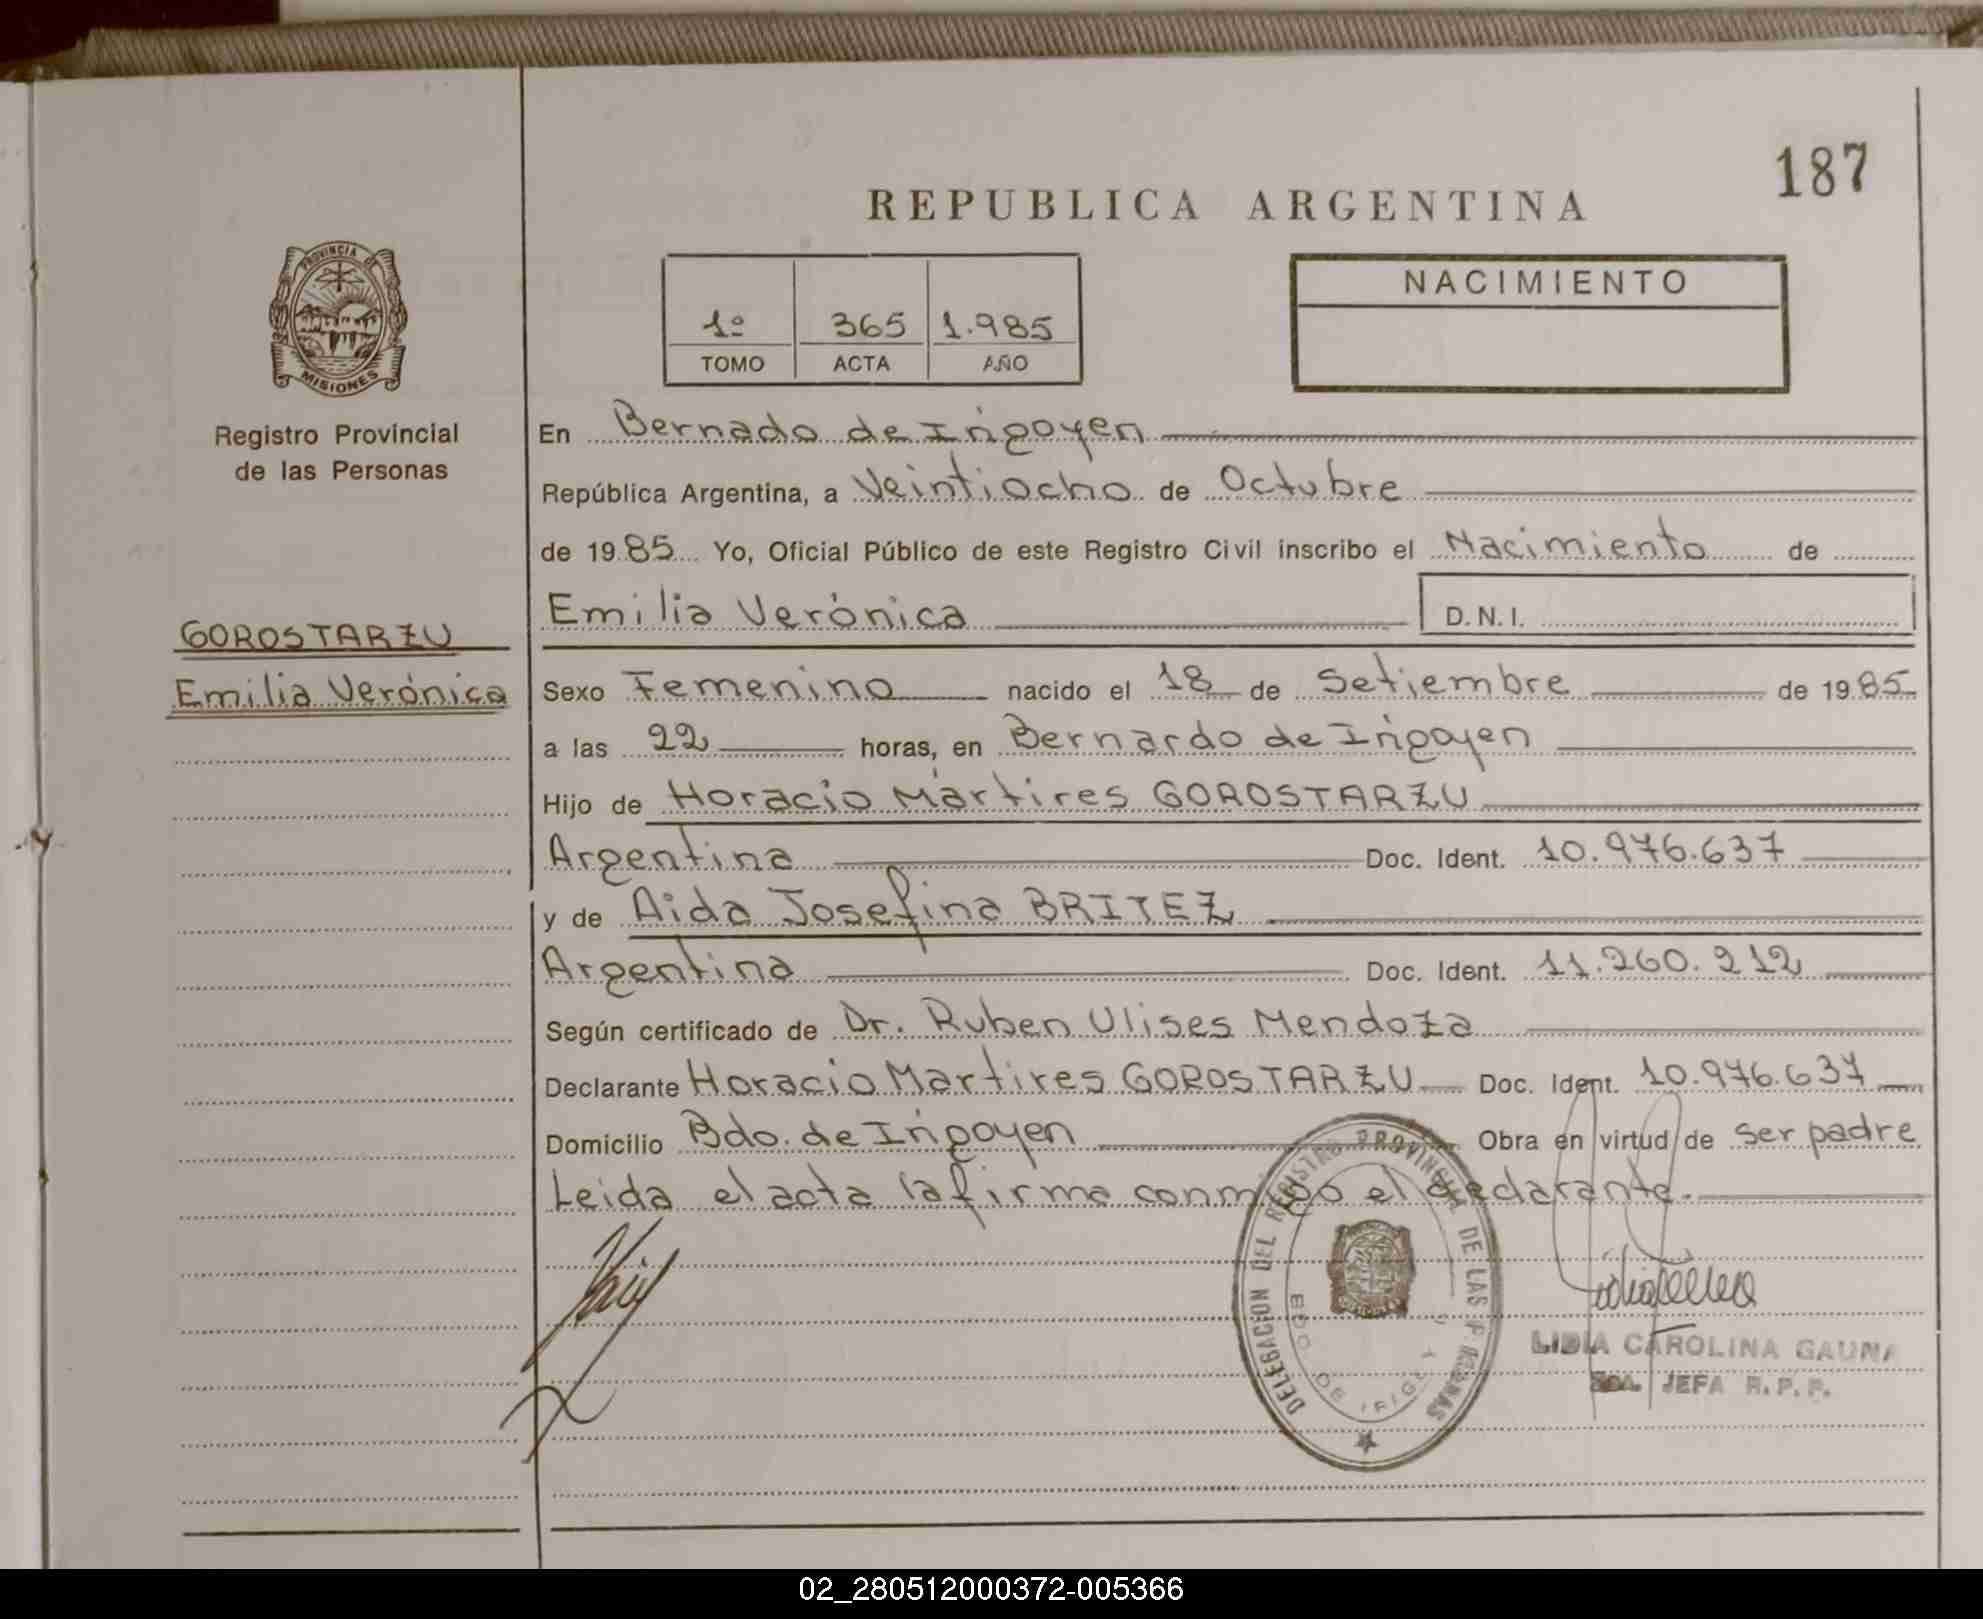 187
REPUBLICA ARGENTINA
PROVINCIA DE
MISIONES
Registro Provincial
de las Personas
1º 365 1.985
TOMO ACTA AÑO
NACIMIENTO
En Bernado de Irigoyen
República Argentina, a Veintiocho de Octubre
de 1985 Yo, Oficial Público de este Registro Civil inscribo el Nacimiento de
Emilia Verónica D.N.I.
GOROSTARZU
Emilia Verónica
Sexo Femenino nacido el 18 de Setiembre de 1985
a las 22 horas, en Bernardo de Irigoyen
Hijo de Horacio Mártires GOROSTARZU
Argentina Doc. Ident. 10.976.637
y de Aida Josefina BRITEZ
Argentina Doc. Ident. 11.260.212
Según certificado de Dr. Ruben Ulises Mendoza
Declarante Horacio Martires GOROSTARZU Doc. Ident. 10.976.637
Domicilio Bdo. de Irigoyen Obra en virtud de ser padre
Leida el acta la firma conmigo el declarante.
DELEGACION DEL REGISTRO PROVINCIAL DE LAS PERSONAS
BDO DE IRIGOYEN
LIDIA CAROLINA GAUNA
JEFA R.P.P.
02_280512000372-005366